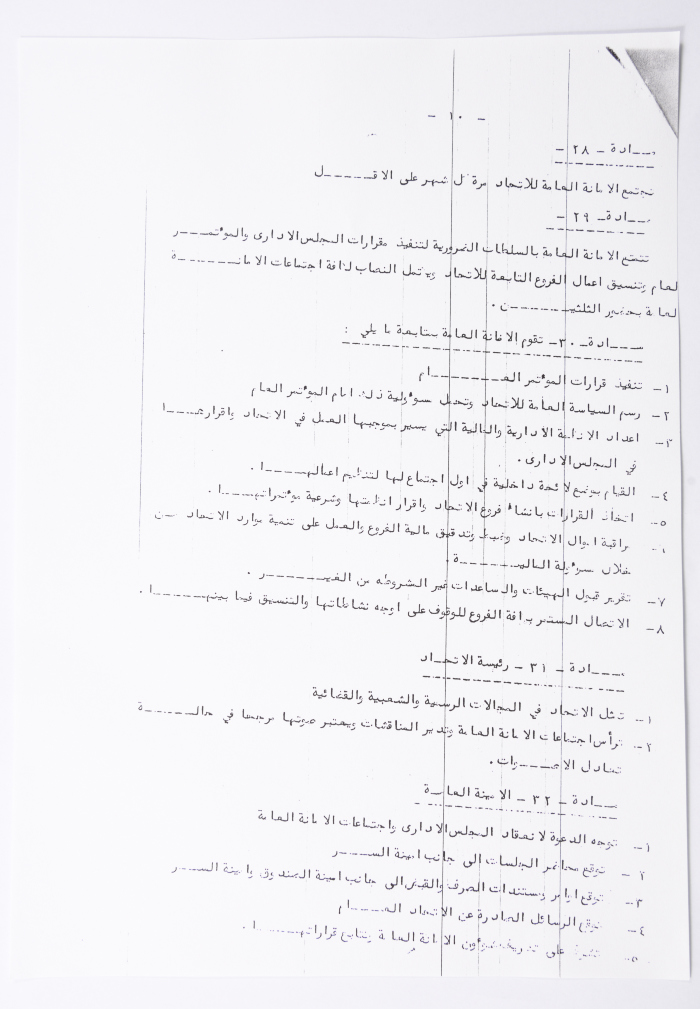 - ١٠ -
مادة - ٢٨ -
تجتمع الامانة العامة للاتحاد مرة كل شهر على الاقل
مادة - ٢٩ -
تتمتع الامانة العامة بالسلطات الضرورية لتنفيذ مقرارات المجلس الادارى والموتمر
العام وتنسيق اعمال الفروع التابعة للاتحاد ويكتمل النصاب لكافة اجتماعات الامانة
العامة بحضور الثلثين .
مادة - ٣٠ - تقوم الامانة العامة بمتابعة ما يلي :
١- تنفيذ قرارات المؤتمر العام
٢- رسم السياسة العامة للاتحاد وتحمل مسؤولية ذلك امام الموتمر العام
٣- اعداد الانظمة الأدارية والمالية التي يسير بموجبها العمل في الاتحاد واقرارها
في المجلس الادارى .
٤- القيام بوضع لائحة داخلية في اول اجتماع لها لتنظيم اعمالها .
٥- اتخاذ القرارات بانشاء فروع الاتحاد واقرار انظمتها وشرعية مؤتمراتها .
٦- مراقبة اموال الاتحاد وضبط وتدقيق مالية الفروع والعمل على تنمية موارد الاتحاد من
خلال مسؤولة المالية .
٧- تقرير قبول الهيئات والمساعدات غير المشروطه من الغير .
٨- الاتصال المستمر بكافة الفروع للوقوف على اوجه نشاطاتها والتنسيق فيما بينها .
مادة - ٣١ - رئيسة الاتحاد
١- تمثل الاتحاد في المجالات الرسمية والشعبية والقضائية
٢- ترأس اجتماعات الامانة العامة وتدير المناقشات ويعتبر صوتها مرجحا في حالة
تعادل الاصوات .
مادة - ٣٢ - الامينة العامة
١- توجه الدعوة لانعقاد المجلس الادارى واجتماعات الامانة العامة
٢- توقع محاضر الجلسات الى جانب امينة السر
٣- توقع اوامر ومستندات الصرف والقبض الى جانب امينة الصندوق وامينة السر
٤- توقع الرسائل الصادرة عن الاتحاد العام
٥- تشرف على تصريف شؤون الامانة العامة وتتابع قراراتها .